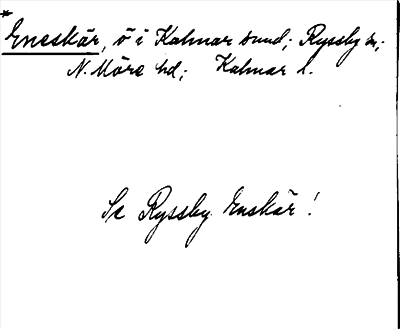 * Eneskär, ö i Kalmar sund; Ryssby sn;
N. Möre hd; Kalmar l.
Se Ryssby Enskär!